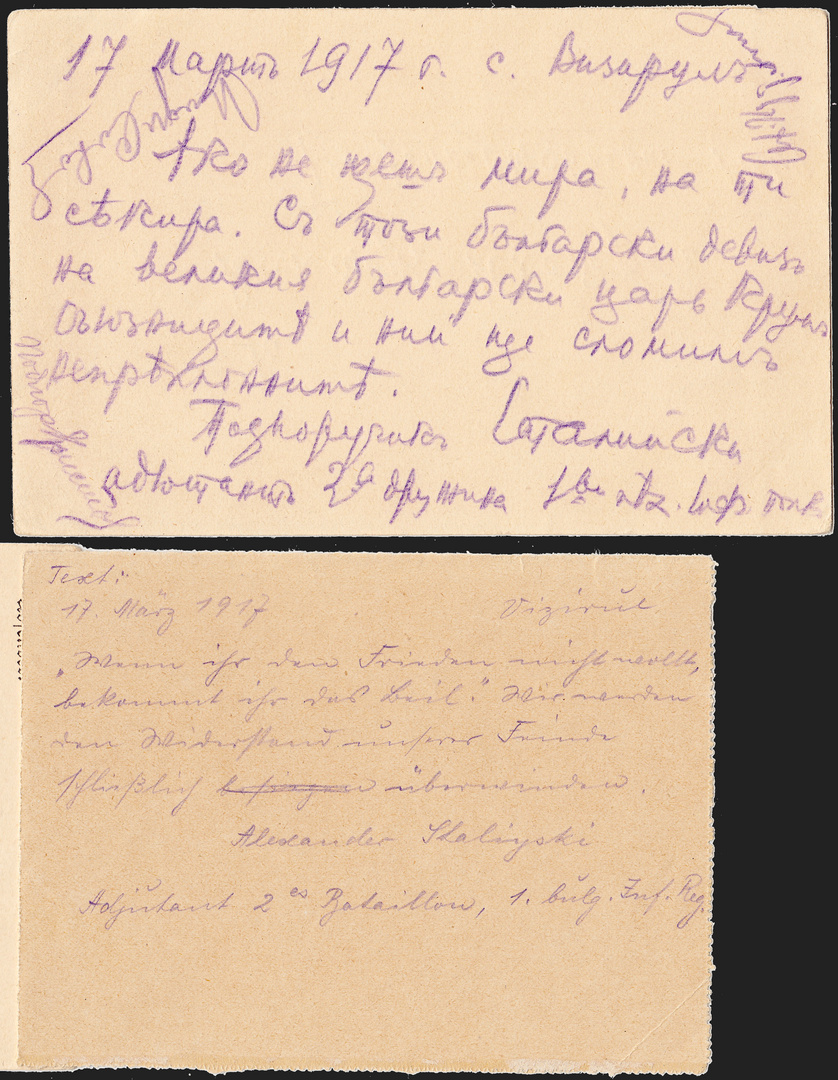 17 Мартъ 1917 г. с. Визирулъ
Ако не щешъ мира, на ти
сѣкира. Съ този български девизъ
на великия български царь Крумъ
съюзницитѣ и ний ще сломимъ
непрѣклоннитѣ.
Подпоручикъ Сталийски
адютантъ 2а дружина 1ви пѣх. Соф. полк
Text:
17. März 1917 Vizirul.
„Wenn ihr den Frieden nicht wollt,
bekommt ihr das Beil." Wir werden
den Widerstand unserer Feinde
schließlich besiegen überwinden.
Alexander Staliyski
Adjutant 2es Bataillon, 1. bulg. Inf. Reg.